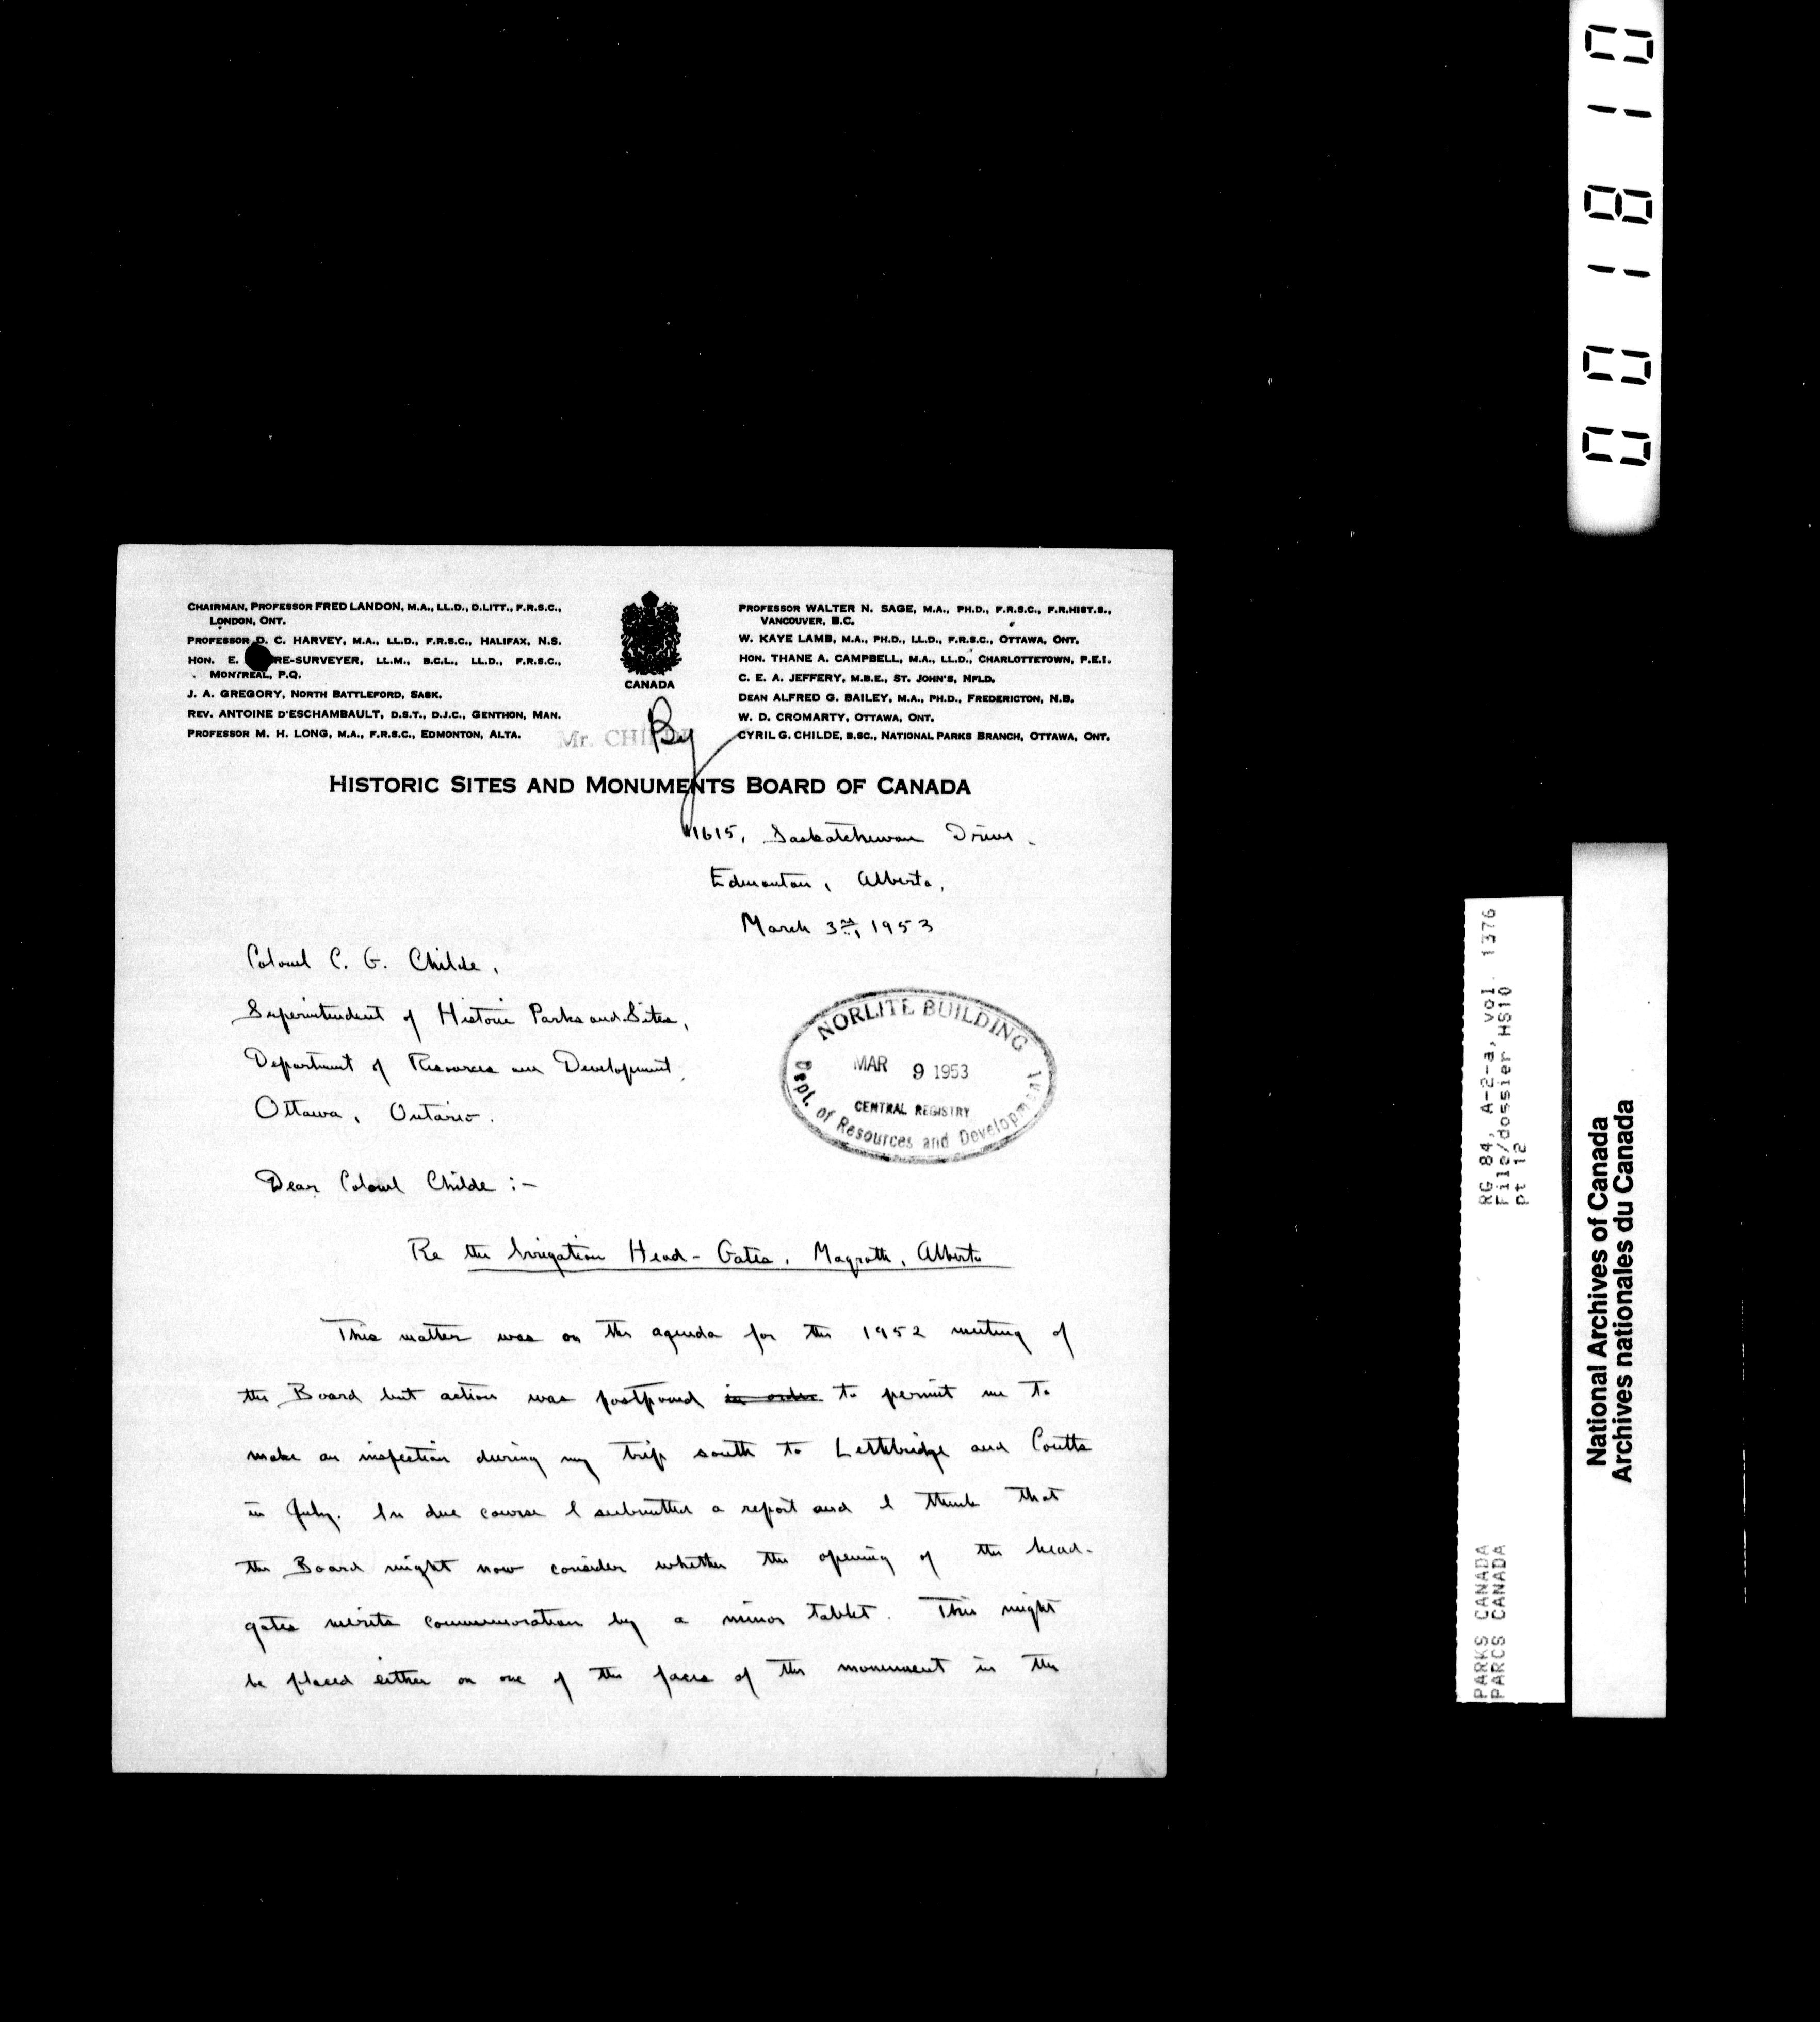 CHAIRMAN, PROFESSOR FRED LANDON, M.A., LL.D., D.LITT., F.R.S.C.,
LONDON, ONT.
PROFESSOR D. C. HARVEY, M.A., LL.D., F.R.S.C., HALIFAX, N.S.
HON. E. RE-SURVEYER, LL.M., B.C.L., LL.D., F.R.S.C.,
MONTREAL, P.Q.
J. A. GREGORY, NORTH BATTLEFORD, SASK.
REV. ANTOINE D'ESCHAMBAULT, D.S.T., D.J.C., GENTHON, MAN.
PROFESSOR M. H. LONG, M.A., F.R.S.C., EDMONTON, ALTA.
CANADA
PROFESSOR WALTER N. SAGE, M.A., PH.D., F.R.S.C., F.R.HIST.S.,
VANCOUVER, B.C.
W. KAYE LAMB, M.A., PH.D., LL.D., F.R.S.C., OTTAWA, ONT.
HON. THANE A. CAMPBELL, M.A., LL.D., CHARLOTTETOWN, P.E.I.
C. E. A. JEFFERY, M.B.E., ST. JOHN'S, NFLD.
DEAN ALFRED G. BAILEY, M.A., PH.D., FREDERICTON, N.B.
W. D. CROMARTY, OTTAWA, ONT.
CYRIL G. CHILDE, B.SC., NATIONAL PARKS BRANCH, OTTAWA, ONT.
Mr. CHI
HISTORIC SITES AND MONUMENTS BOARD OF CANADA
11615, Saskatchewan Drive.
Edmonton, Alberta,
March 3rd, 1953
Colonel C. G. Childe,
Superintendent of Historic Parks and Sites,
Department of Resources and Development,
Ottawa, Ontario.
NORLITE BUILDING
MAR 9 1953
CENTRAL REGISTRY
Dept. of Resources and Development
Dear Colonel Childe :-
Re the Irrigation Head-Gates, Magrath, Alberta
This matter was on the agenda for the 1952 meeting of
the Board but action was postponed in order to permit me to
make an inspection during my trip south to Lethbridge and Coutts
in July. In due course I submitted a report and I think that
the Board might now consider whether the opening of the head-
gates merits commemoration by a minor tablet. This might
be placed either on one of the faces of the monument in the
00-18-10
RG 84, A-2-a, vol. 1376
File/dossier HS10
pt 12
PARKS CANADA
PARCS CANADA
National Archives of Canada
Archives nationales du Canada